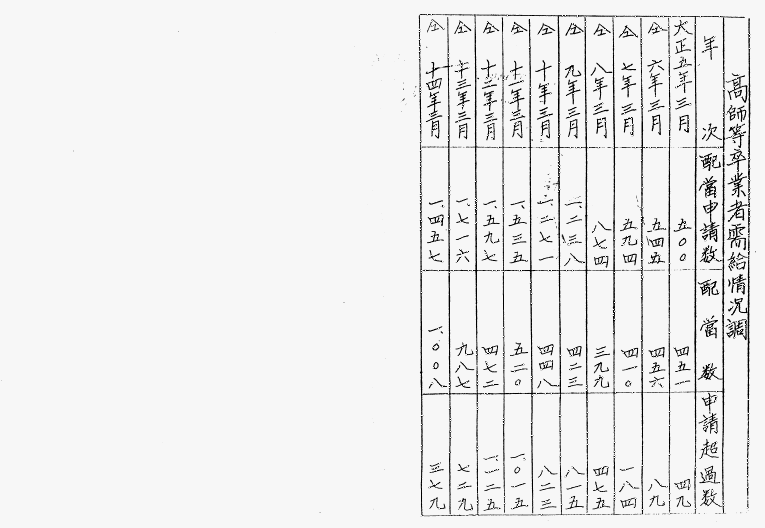 高師等卒業者需給情況調
年次 配當申請数 配當数 申請超過数
大正五年三月 五〇〇 四五一 四九
仝 六年三月 五四五 四五六 八九
仝 七年三月 五九四 四一〇 一八四
仝 八年三月 八七四 三九九 四七五
仝 九年三月 一、二三八 四二三 八一五
仝 十年三月 一、二七一 四四八 八二三
仝 十一年三月 一、五三五 五二〇 一、〇一五
仝 十二年三月 一、五九七 四七二 一、一二五
仝 十三年三月 一、七一六 九八七 七二九
仝 十四年三月 一、四五七 一、〇〇八 三七九